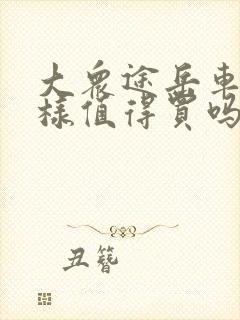 大众途岳车
样值得买吗
丑簪